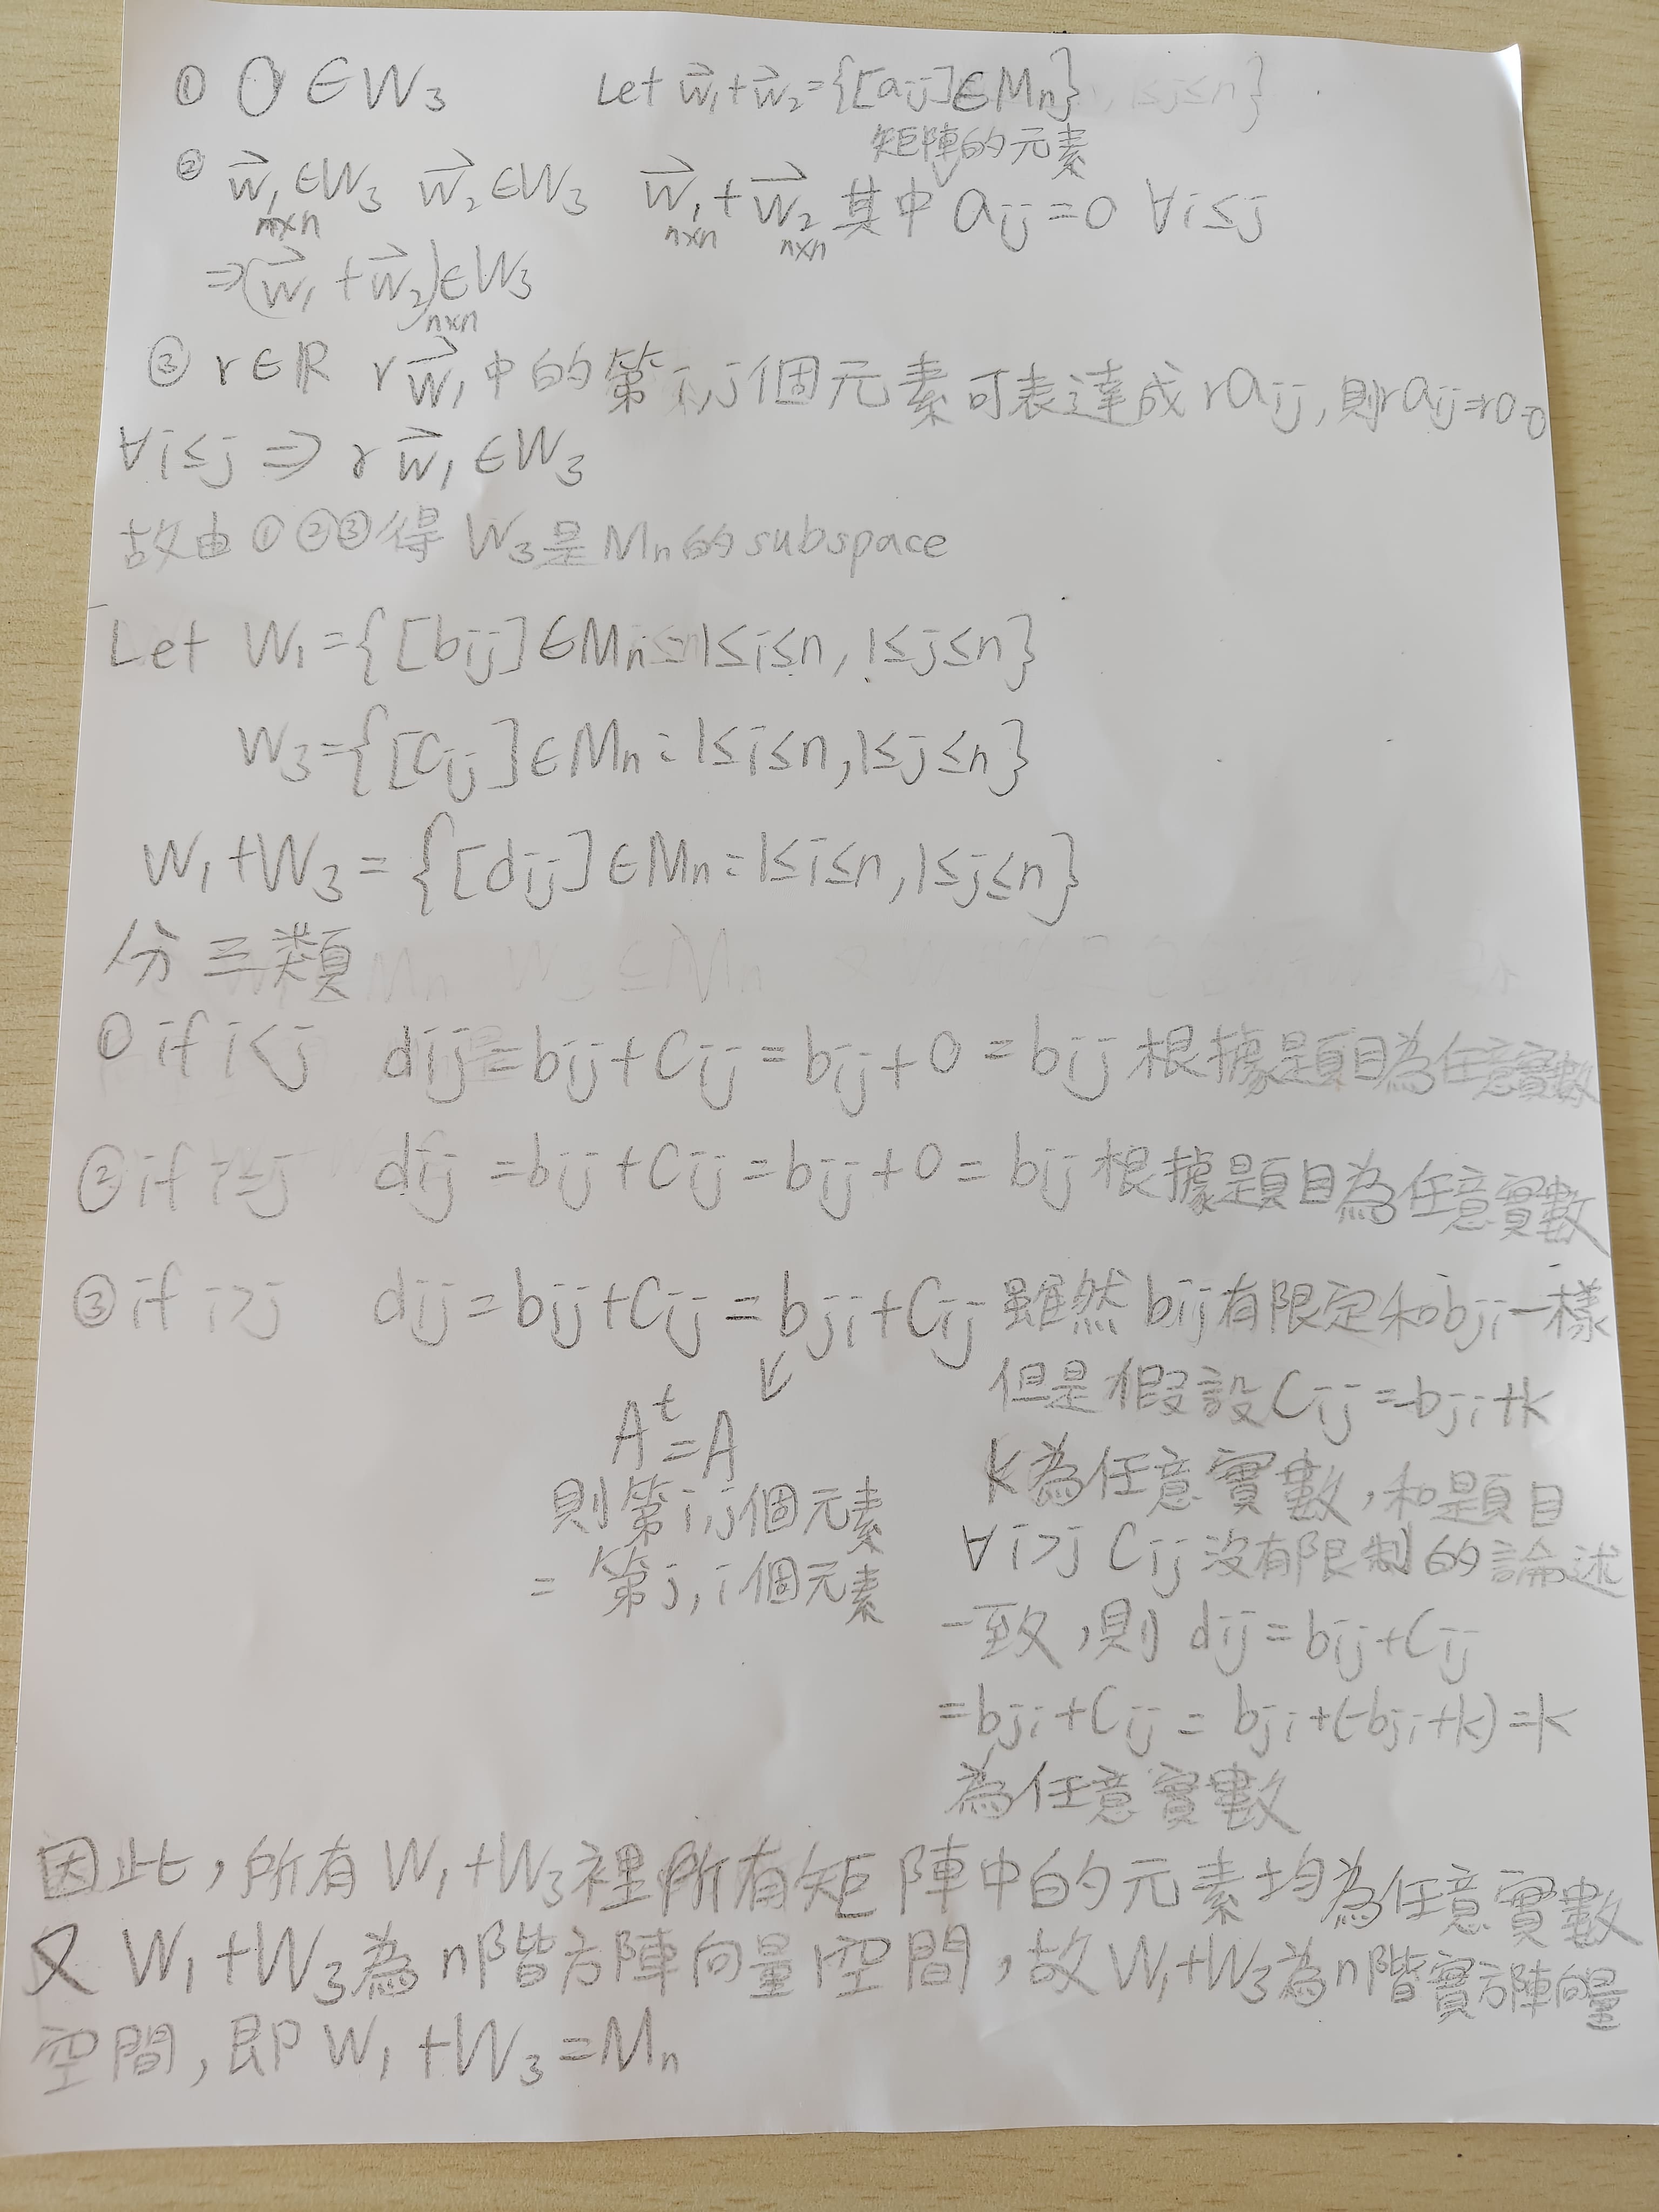 ① O ∈ W₃ Let w⃗₁+w⃗₂={[aij]∈Mn}
矩陣的元素
② w⃗₁∈W₃ w⃗₂∈W₃ w⃗₁+w⃗₂其中 aij=0 ∀i≤j
n×n n×n n×n
⇒(w⃗₁+w⃗₂)∈W₃
n×n
③ r∈ℝ rw⃗₁中的第i,j個元素可表達成raij,則raij=r0=0
∀i≤j ⇒ rw⃗₁∈W₃
故由①②③得 W₃是Mn的subspace
Let W₁={[bij]∈Mn:1≤i≤n,1≤j≤n}
W₃={[cij]∈Mn:1≤i≤n,1≤j≤n}
W₁+W₃={[dij]∈Mn:1≤i≤n,1≤j≤n}
分三類
① if i<j dij=bij+cij=bij+0=bij根據題目為任意實數
② if i=j dij=bij+cij=bij+0=bij根據題目為任意實數
③ if i>j dij=bij+cij=bji+cij 雖然bij有限定和bji一樣
但是假設cij=-bji+k
k為任意實數,和題目
∀i>j cij沒有限制的論述
一致,則 dij=bij+cij
=bji+cij=bji+(-bji+k)=k
為任意實數
↙
Aᵗ=A
則第i,j個元素
=第j,i個元素
因此,所有W₁+W₃裡所有矩陣中的元素均為任意實數
又W₁+W₃為n階方陣向量空間,故W₁+W₃為n階實方陣向量
空間,即W₁+W₃=Mn